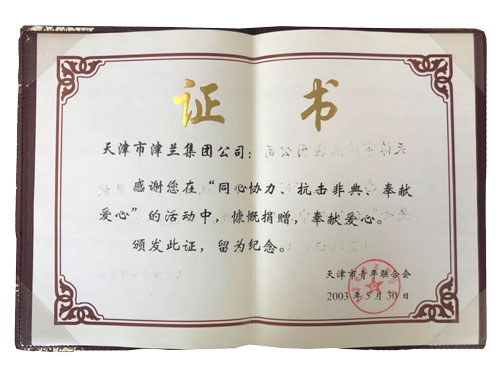 证 书
天津市津兰集团公司:
感谢您在“同心协力、抗击非典、奉献
爱心”的活动中,慷慨捐赠,奉献爱心。
颁发此证,留为纪念。
天津市青年联合会
2003年5月30日